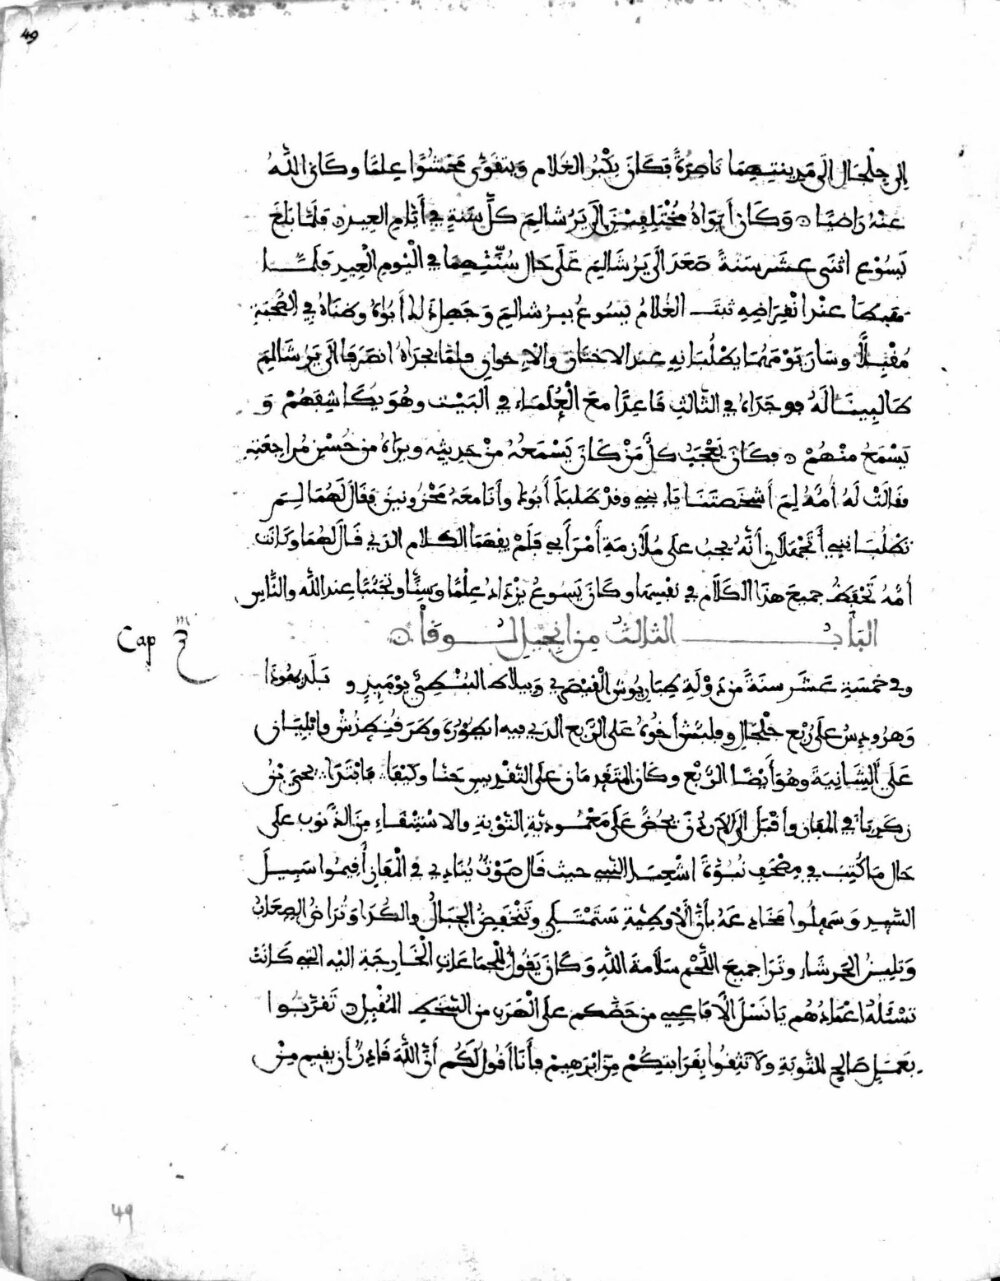 49
إلى جلجال إلى مدينتهما ناصرة فكان يكبر الغلام ويتقوى محتشوا علما وكان الله
عنه راضيا وكان أبواه مختلفين إلى يرشالم كل سنة في أيام العيد فلما بلغ
يسوع اثنى عشر سنة صعد إلى يرشالم على حال سنتهما في اليوم العيد فلما
هبطا عند انقراضه ثبت الغلام يسوع بيرشالم وجهل ذلك أبوه وظناه في الصحبة
مقبلا وسار يومهما يطلبانه عند الاختان والإخوان فلما يجداه انصرفا إلى يرشالم
طالبينا له فوجداه في الثالث قاعدا مع العلماء في البيت وهو يكاشفهم و
يسمع منهم فكان يعجب كل من كان يسمعه من حديثه ويراه من حسن مراجعته
فقالت له أمه لم أشخصتنا يا بني وقد طلبك أبوك وأنا معه محزونين فقال لهما لم
تطلبانني أتجهلان أنه يجب علي ملازمة أمر أبي فلم يفهما الكلام الذي قال لهما وكانت
أمه تحفظ جميع هذا الكلام في نفسها وكان يسوع يزداد علما وسنا وتحننا عند الله والناس
الباب الثالث من انجيل لوقا
Cap 3
وفي خمسة عشر سنة من دولة طباريوس القيصر وبيلاط البنطي يومئذ و بلد يهوذا
وهرودس على ربع جلجال وفلبش أخوه على الربع الذي فيه اطورة وطرقنطش وابليان
على البشانية وهو أيضا الربع وكان المتقدمان على التقديس حنا وكيفا فابتدا يحيى بن
زكرياء في المفاز وأقبل إلى الاردن يحض على معمودية التوبة والاستنقاء من الذنوب على
حال ما كتب في مصحف نبوة اشعيا النبي حيث قال صوت ينادي في المفاز أقيموا سبيل
السيد وسهلوا مخادعه بأن الاوطية ستمتلى وتنخفض الجبال والكدا وتراض الصعاب
وتلين الحرشاء وترا جميع اللحم سلامة الله وكان يقول للجماعات الخارجة اليه التي كانت
تسئله اعمادهم يا نسل الأفاعي من حضكم على الهرب من السخط المقبل تقربوا
بعمل صالح للتوبة ولا تثقوا بقرابتكم من ابرهيم فأنا أقول لكم أن الله قادر أن يقيم من
49